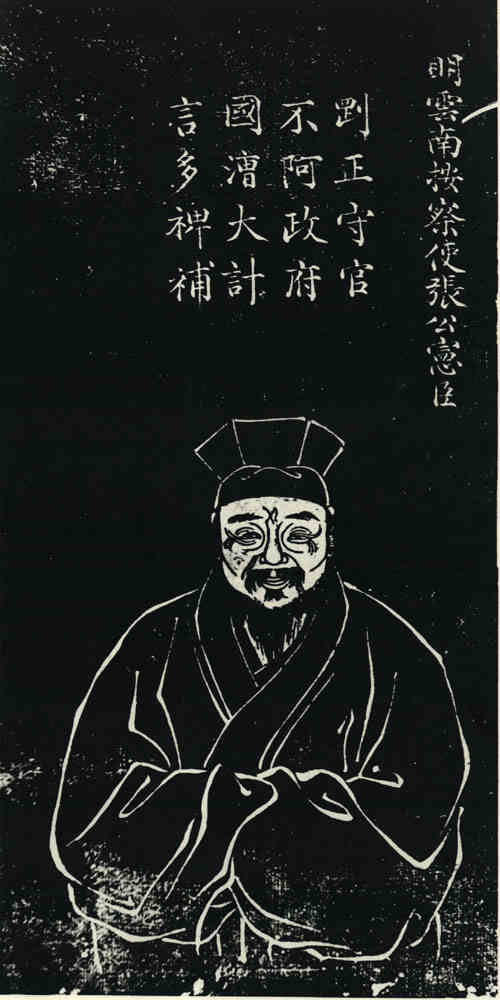 明雲南按察使張公憲臣
剛正守官
不阿政府
國漕大計
言多裨補